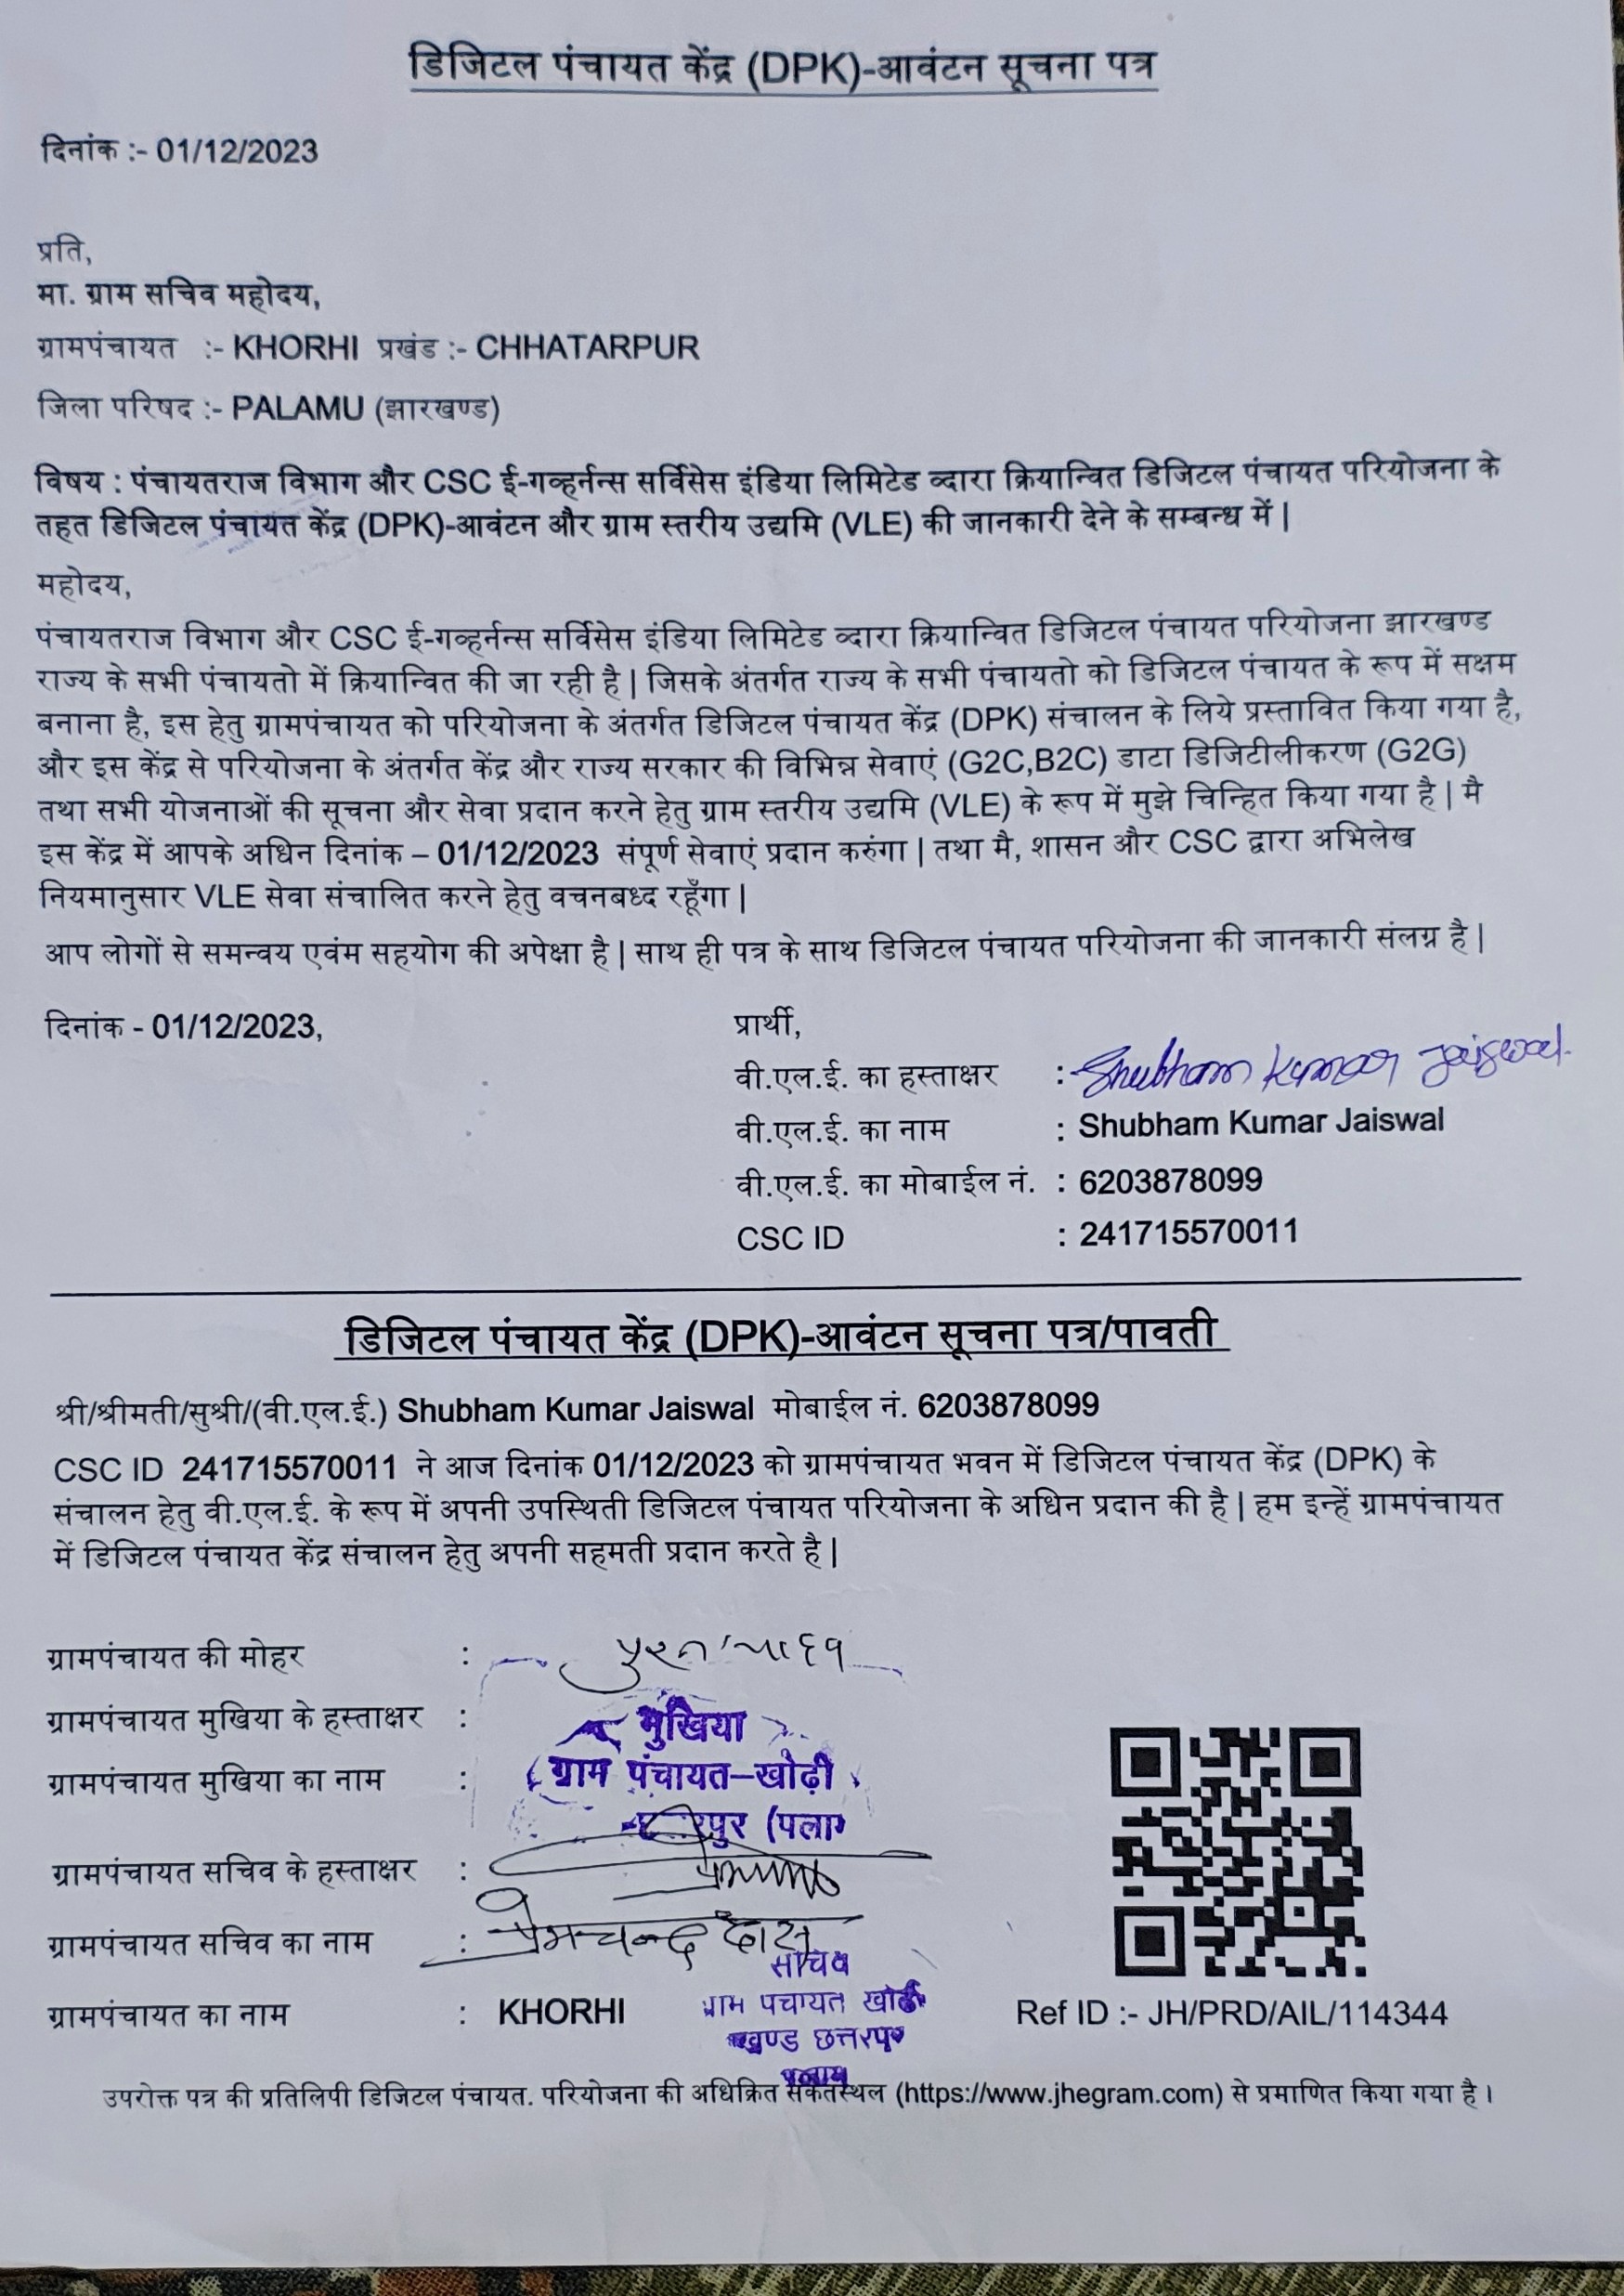 डिजिटल पंचायत केंद्र (DPK)-आवंटन सूचना पत्र
दिनांक :- 01/12/2023
प्रति,
मा. ग्राम सचिव महोदय,
ग्रामपंचायत :- KHORHI प्रखंड :- CHHATARPUR
जिला परिषद :- PALAMU (झारखण्ड)
विषय : पंचायतराज विभाग और CSC ई-गव्हर्नन्स सर्विसेस इंडिया लिमिटेड व्दारा क्रियान्वित डिजिटल पंचायत परियोजना के
तहत डिजिटल पंचायत केंद्र (DPK)-आवंटन और ग्राम स्तरीय उद्यमि (VLE) की जानकारी देने के सम्बन्ध में |
महोदय,
पंचायतराज विभाग और CSC ई-गव्हर्नन्स सर्विसेस इंडिया लिमिटेड व्दारा क्रियान्वित डिजिटल पंचायत परियोजना झारखण्ड
राज्य के सभी पंचायतो में क्रियान्वित की जा रही है | जिसके अंतर्गत राज्य के सभी पंचायतो को डिजिटल पंचायत के रूप में सक्षम
बनाना है, इस हेतु ग्रामपंचायत को परियोजना के अंतर्गत डिजिटल पंचायत केंद्र (DPK) संचालन के लिये प्रस्तावित किया गया है,
और इस केंद्र से परियोजना के अंतर्गत केंद्र और राज्य सरकार की विभिन्न सेवाएं (G2C,B2C) डाटा डिजिटीलीकरण (G2G)
तथा सभी योजनाओं की सूचना और सेवा प्रदान करने हेतु ग्राम स्तरीय उद्यमि (VLE) के रूप में मुझे चिन्हित किया गया है | मै
इस केंद्र में आपके अधिन दिनांक – 01/12/2023 संपूर्ण सेवाएं प्रदान करुंगा | तथा मै, शासन और CSC द्वारा अभिलेख
नियमानुसार VLE सेवा संचालित करने हेतु वचनबध्द रहूँगा |
आप लोगों से समन्वय एवंम सहयोग की अपेक्षा है | साथ ही पत्र के साथ डिजिटल पंचायत परियोजना की जानकारी संलग्न है |
दिनांक - 01/12/2023,
प्रार्थी,
वी.एल.ई. का हस्ताक्षर : Shubham Kumar Jaiswal
वी.एल.ई. का नाम : Shubham Kumar Jaiswal
वी.एल.ई. का मोबाईल नं. : 6203878099
CSC ID : 241715570011
डिजिटल पंचायत केंद्र (DPK)-आवंटन सूचना पत्र/पावती
श्री/श्रीमती/सुश्री/(वी.एल.ई.) Shubham Kumar Jaiswal मोबाईल नं. 6203878099
CSC ID 241715570011 ने आज दिनांक 01/12/2023 को ग्रामपंचायत भवन में डिजिटल पंचायत केंद्र (DPK) के
संचालन हेतु वी.एल.ई. के रूप में अपनी उपस्थिती डिजिटल पंचायत परियोजना के अधिन प्रदान की है | हम इन्हें ग्रामपंचायत
में डिजिटल पंचायत केंद्र संचालन हेतु अपनी सहमती प्रदान करते है |
ग्रामपंचायत की मोहर :
ग्रामपंचायत मुखिया के हस्ताक्षर : मुखिया
ग्रामपंचायत मुखिया का नाम : ग्राम पंचायत–खोढ़ी
ग्रामपंचायत सचिव के हस्ताक्षर :
ग्रामपंचायत सचिव का नाम : प्रेमचन्द दास
सचिव
ग्रामपंचायत का नाम : KHORHI
ग्राम पंचायत खोढ़ी
Ref ID :- JH/PRD/AIL/114344
उपरोक्त पत्र की प्रतिलिपी डिजिटल पंचायत. परियोजना की अधिक्रित संकेतस्थल (https://www.jhegram.com) से प्रमाणित किया गया है ।